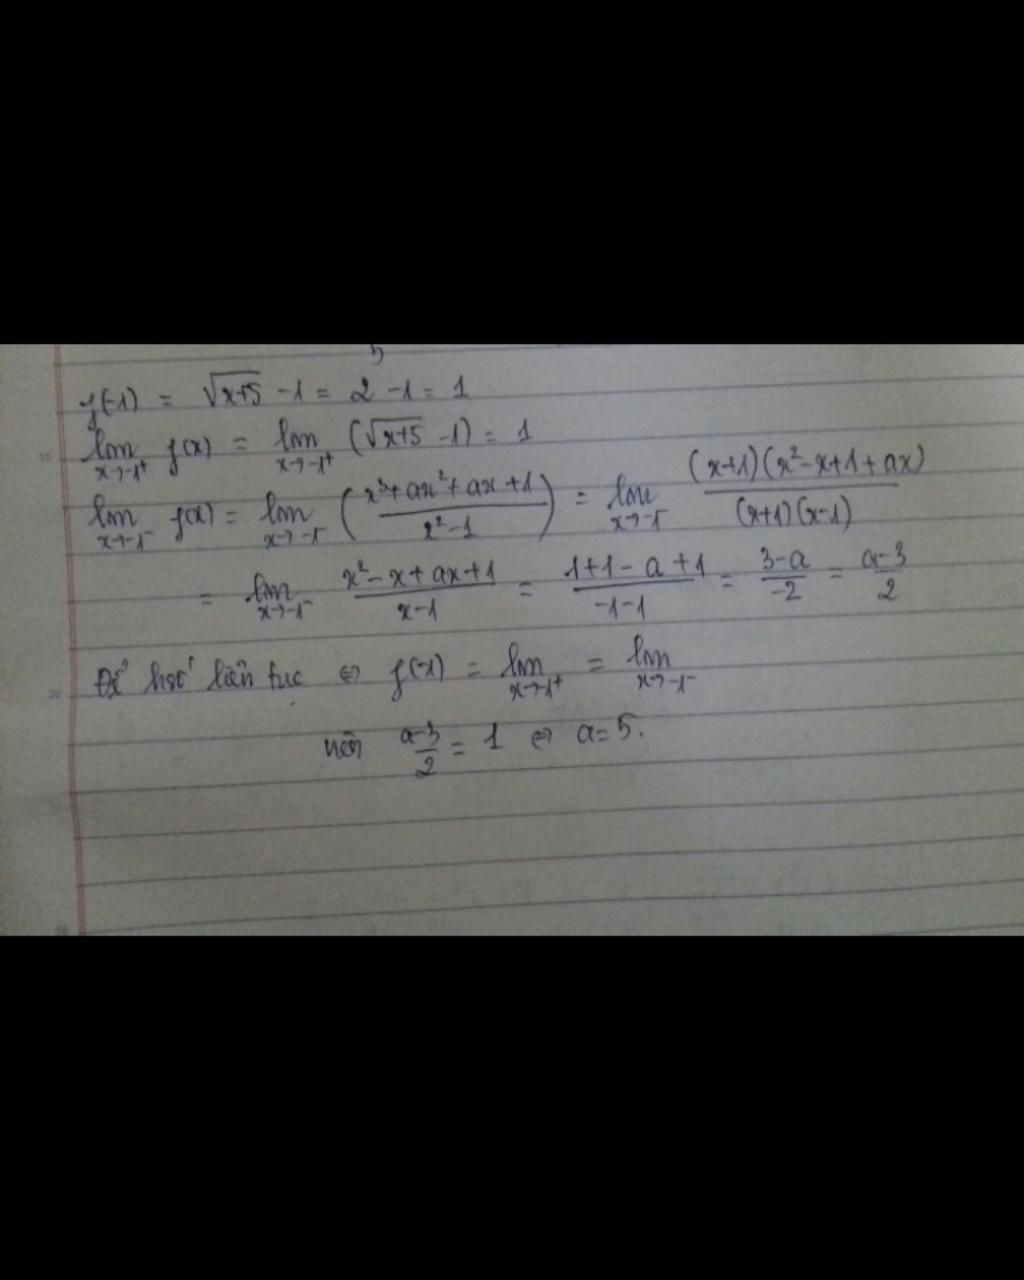 f(-1) = √x+5 - 1 = 2 - 1 = 1
lim x→-1⁺ f(x) = lim x→-1⁺ (√x+5 - 1) = 1
lim x→-1⁻ f(x) = lim x→-1⁻ (x³+ax²+ax+1 / x²-1) = lim x→-1⁻ (x+1)(x²-x+1+ax) / (x+1)(x-1)
= lim x→-1⁻ x²-x+ax+1 / x-1 = 1+1-a+1 / -1-1 = 3-a / -2 = a-3 / 2
Để hsố liên tục ⇔ f(-1) = lim x→-1⁺ = lim x→-1⁻
nên a-3 / 2 = 1 ⇔ a=5.